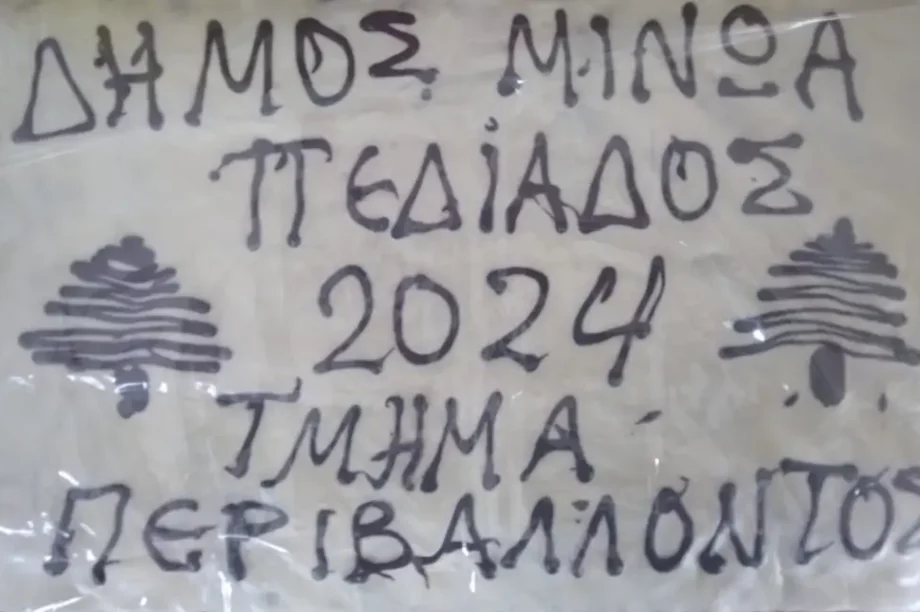 ΔΗΜΟΣ ΜΙΝΩΑ
ΠΕΔΙΑΔΟΣ
2024
ΤΜΗΜΑ
ΠΕΡΙΒΑΛΛΟΝΤΟΣ